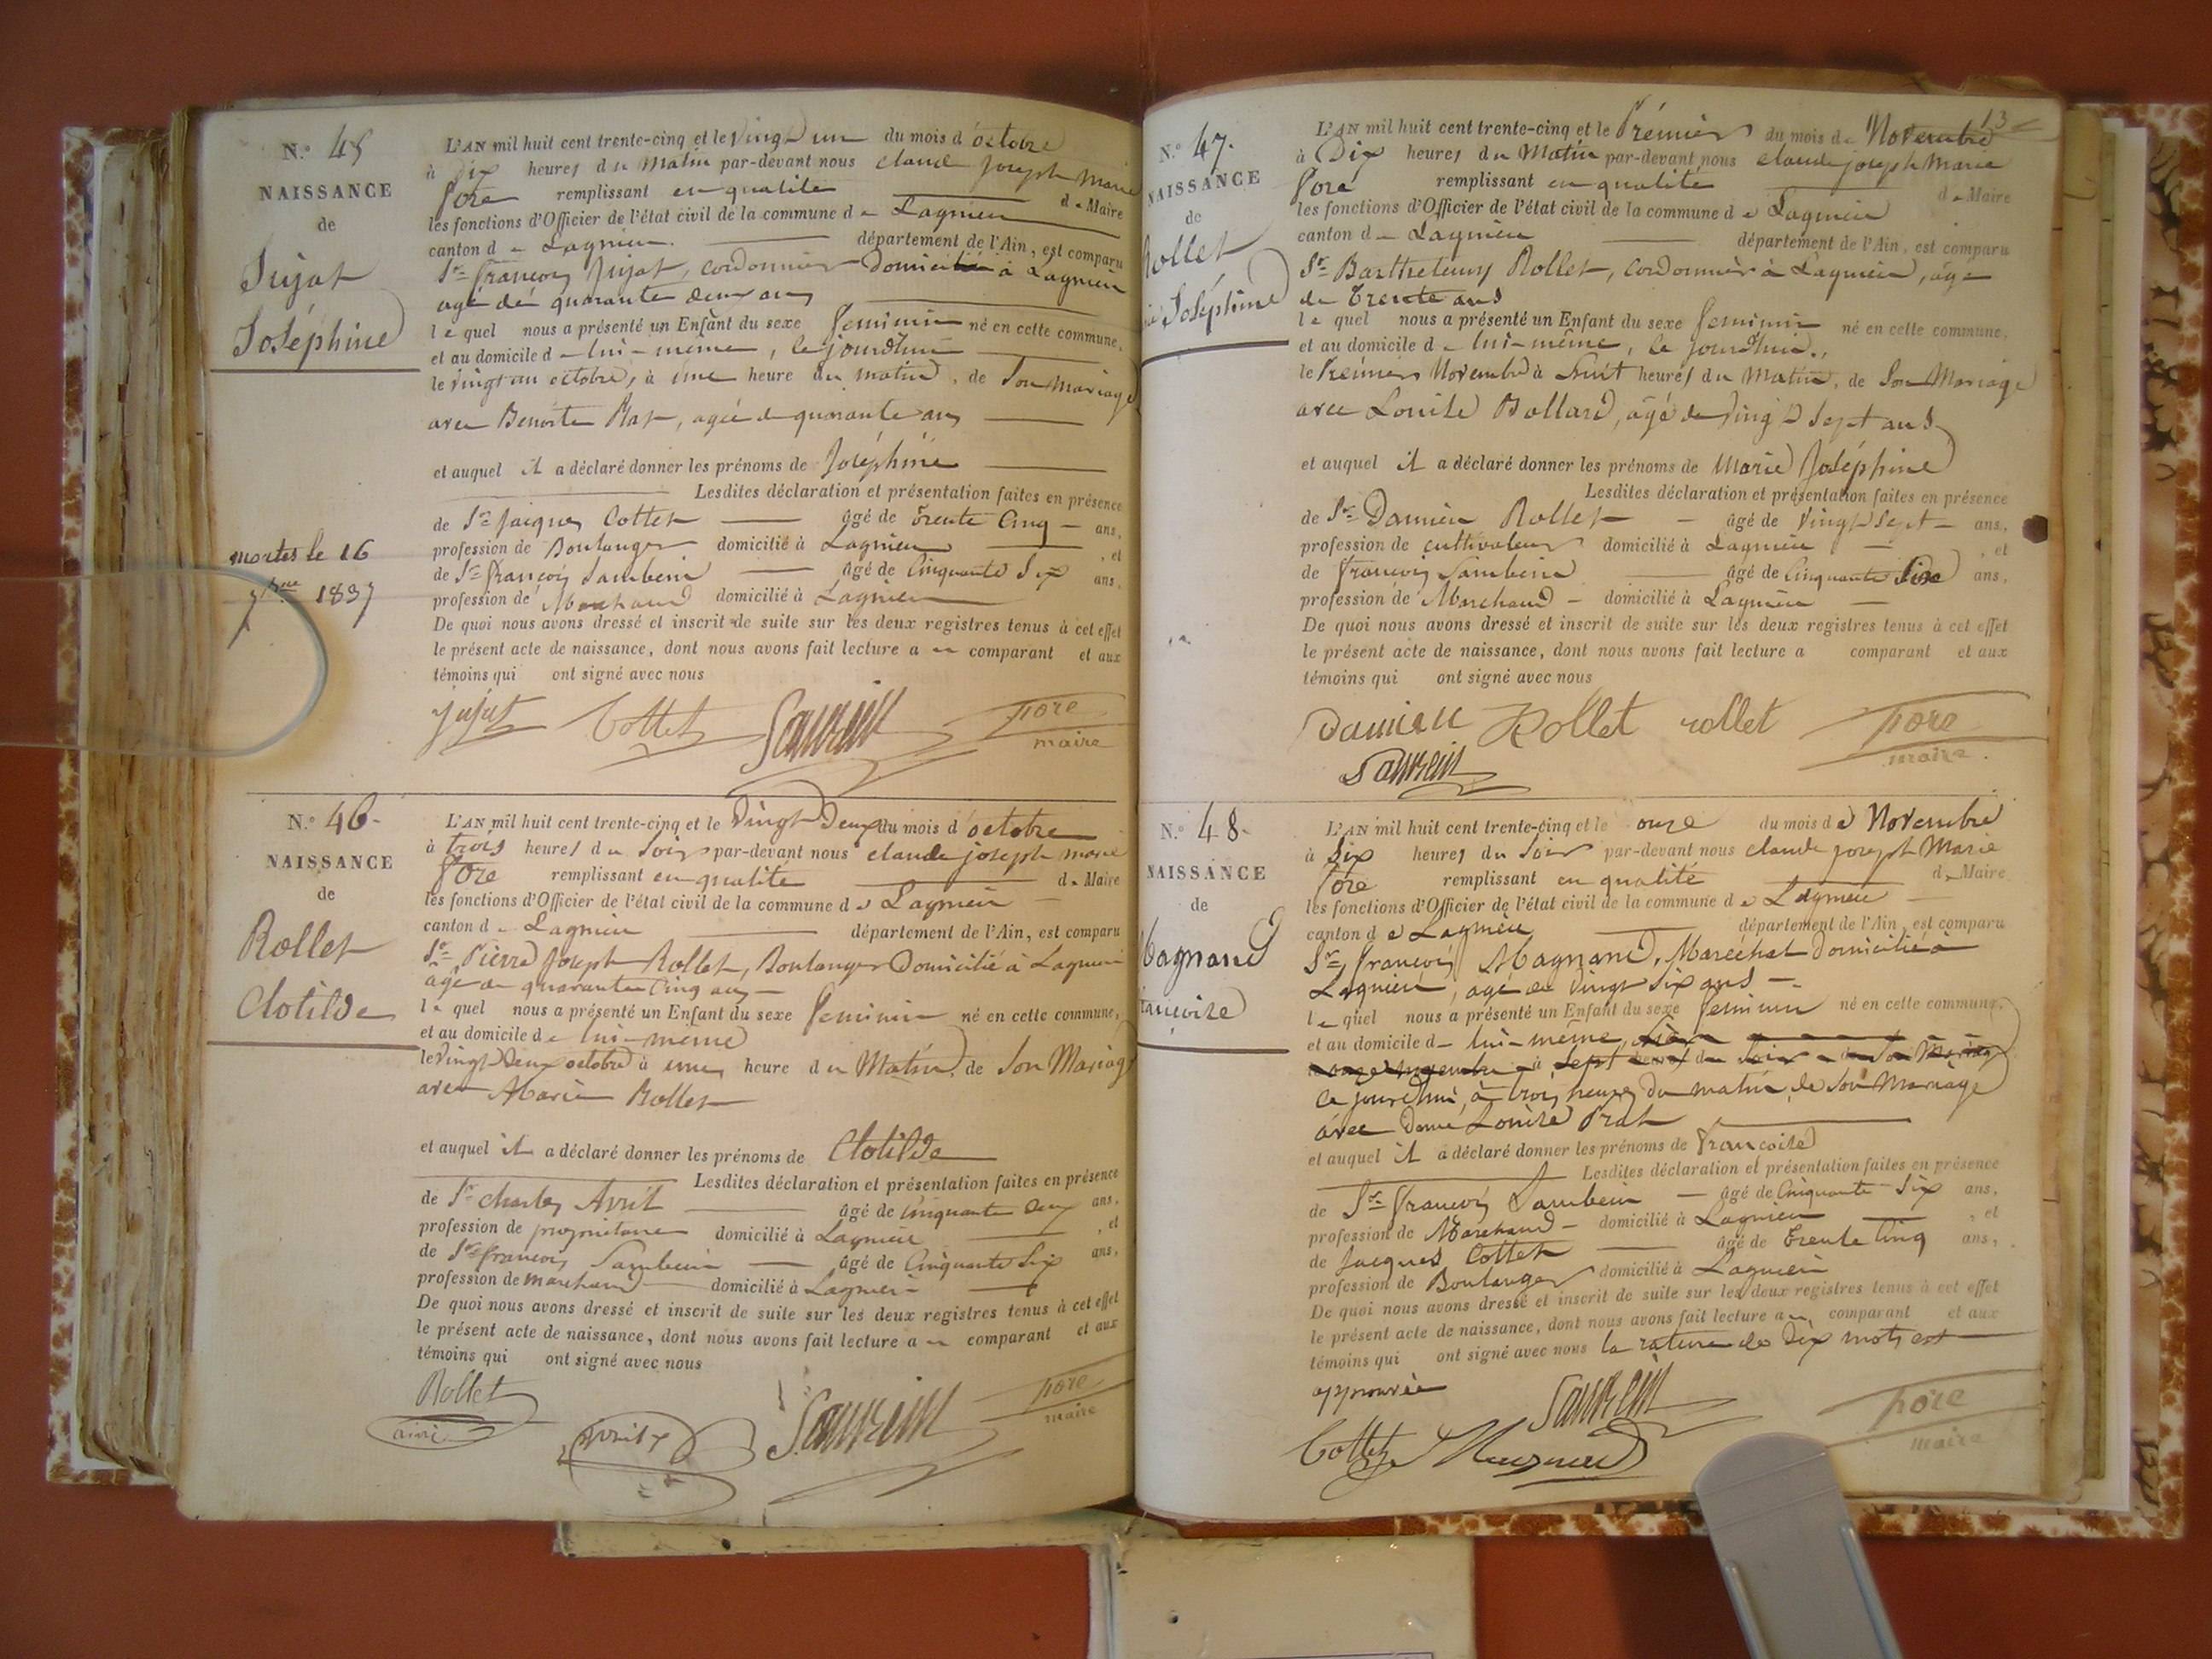 N.o 45
NAISSANCE
de
Jujat
Joséphine
mortes le 16
7bre 1837
L'AN mil huit cent trente-cinq et le vingt un du mois d'octobre
à dix heures du Matin par-devant nous claude joseph marie
pore remplissant en qualite de Maire
les fonctions d'Officier de l'état civil de la commune de Lagnieu
canton de Lagnieu département de l'Ain, est comparu
Sr. françois Jujat, cordonnier domicilié à Lagnieu
agé de quarante deux ans
lequel nous a présenté un Enfant du sexe feminin né en cette commune,
et au domicile de lui-même, le jourdhui
le vingt un octobre, à une heure du matin, de son mariage
avec Benoite, agée de quarante ans
et auquel il a déclaré donner les prénoms de Joséphine
Lesdites déclaration et présentation faites en présence
de Sr. Jacques Cottet âgé de trente cinq ans,
profession de Boulanger domicilié à Lagnieu, et
de Sr. françois âgé de cinquante six ans,
profession de Marchand domicilié à Lagnieu
De quoi nous avons dressé et inscrit de suite sur les deux registres tenus à cet effet
le présent acte de naissance, dont nous avons fait lecture au comparant et aux
témoins qui ont signé avec nous
jujat Cottet pore
maire
N.o 46
NAISSANCE
de
Rollet
Clotilde
L'AN mil huit cent trente-cinq et le vingt Deux du mois d'octobre
à trois heures du soir par-devant nous claude joseph marie
pore remplissant en qualite de Maire
les fonctions d'Officier de l'état civil de la commune de Lagnieu
canton de Lagnieu département de l'Ain, est comparu
Sr. Pierre Joseph Rollet, Boulanger Domicilié à Lagnieu
âgé de quarante cinq ans
lequel nous a présenté un Enfant du sexe feminin né en cette commune,
et au domicile de lui-même
le vingt Deux octobre à une heure du Matin, de son Mariage
avec Marie Rollet
et auquel il a déclaré donner les prénoms de Clotilde
Lesdites déclaration et présentation faites en présence
de Sr. charles Avril âgé de cinquante deux ans,
profession de proprietaire domicilié à Lagnieu, et
de Sr. françois âgé de cinquante six ans,
profession de marchand domicilié à Lagnieu
De quoi nous avons dressé et inscrit de suite sur les deux registres tenus à cet effet
le présent acte de naissance, dont nous avons fait lecture au comparant et aux
témoins qui ont signé avec nous
Rollet
ainé avril pore
maire
13
N.o 47.
NAISSANCE
de
Rollet
Joséphine
L'AN mil huit cent trente-cinq et le Premier du mois de Novembre
à Dix heures du Matin par-devant nous claude joseph Marie
Pore remplissant en qualité de Maire
les fonctions d'Officier de l'état civil de la commune de Lagnieu
canton de Lagnieu département de l'Ain, est comparu
Sr. Barthelemy Rollet, cordonnier à Lagnieu, âgé
de trente ans
lequel nous a présenté un Enfant du sexe feminin né en cette commune,
et au domicile de lui-même, le jourdhui,
le Premier Novembre à huit heures du Matin, de son Mariage
avec Louise Bollard, âgé de vingt sept ans
et auquel il a déclaré donner les prénoms de Marie Joséphine
Lesdites déclaration et présentation faites en présence
de Sr. Damien Rollet âgé de vingt sept ans,
profession de cultivateur domicilié à Lagnieu, et
de françois âgé de cinquante six ans,
profession de Marchand domicilié à Lagnieu
De quoi nous avons dressé et inscrit de suite sur les deux registres tenus à cet effet
le présent acte de naissance, dont nous avons fait lecture a comparant et aux
témoins qui ont signé avec nous
Damien Rollet rollet pore
maire
N.o 48.
NAISSANCE
de
Magnand
françoise
L'AN mil huit cent trente-cinq et le onze du mois de Novembre
à six heures du soir par-devant nous claude joseph Marie
pore remplissant en qualité de Maire
les fonctions d'Officier de l'état civil de la commune de Lagnieu
canton de Lagnieu département de l'Ain, est comparu
Sr. françois Magnand, Maréchal domicilié à
Lagnieu, agé de vingt six ans
lequel nous a présenté un Enfant du sexe feminin né en cette commune,
et au domicile de lui-même
onze novembre à sept heures du soir de son Mariage
le jourdhui, à trois heures du matin, de son Mariage
avec Dame Louise Prat
et auquel il a déclaré donner les prénoms de françoise
Lesdites déclaration et présentation faites en présence
de Sr. françois âgé de cinquante six ans,
profession de Marchand domicilié à Lagnieu, et
de Jacques Cottet âgé de trente cinq ans,
profession de Boulanger domicilié à Lagnieu
De quoi nous avons dressé et inscrit de suite sur les deux registres tenus à cet effet
le présent acte de naissance, dont nous avons fait lecture au comparant et aux
témoins qui ont signé avec nous la rature de dix mots est
approuvée
Cottet pore
maire